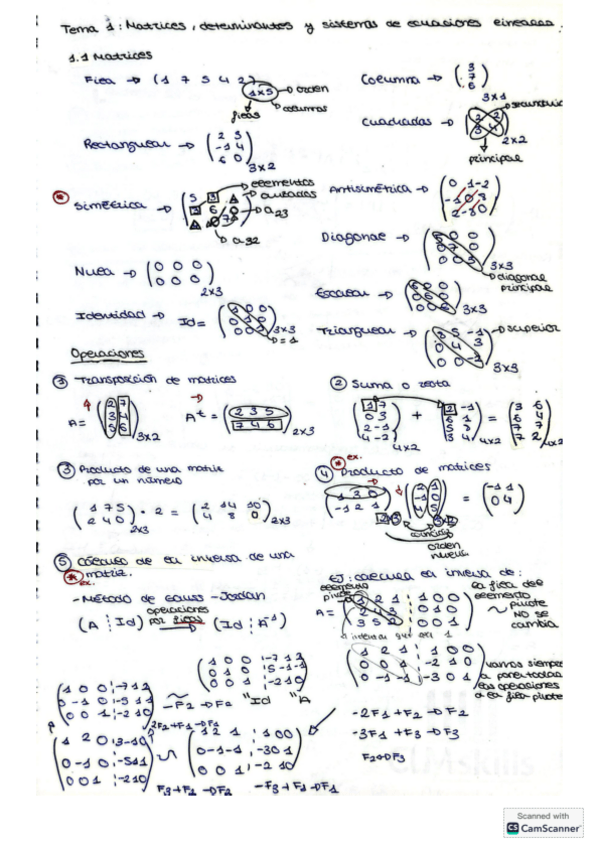 Tema 1: Matrices, determinantes y sistemas de ecuaciones lineales.
1.1 Matrices
Fila → (1 7 5 4 2) 1x5 → orden
filas columnas
Columna → (3 7 6) 3x1
Cuadradas → 2x2 secundaria
principal
Rectangular → (2 3
-1 4
6 0) 3x2
* Simétrica → elementos
cruzados
a23
a32
Antisimétrica → (0 1 -2
Diagonal → 3x3
diagonal
principal
Nula → (0 0 0
0 0 0) 2x3
Escalar → 3x3
Identidad → Id = (1 0 0
0 1 0
0 0 1) 3x3
=1
Triangular → superior
3x3
Operaciones
① Transposición de matrices
A = (2 7
3 4
5 6) 3x2
A^t = (2 3 5
7 4 6) 2x3
② Suma o resta
4x2 + 4x2 = 4x2
③ Producto de una matriz
por un número
(1 7 5
2 4 0) 2x3 · 2 = (2 14 10
4 8 0) 2x3
* ex.
④ Producto de matrices
(1 3 0
-1 2 1) (2 1
-1 0
4 5) = (-1 1
0 4)
2x3 3x2
coinciden
orden
nueva
⑤ Cálculo de la inversa de una
* ex. matriz.
- Método de Gauss-Jordan
operaciones
por filas
(A ⋮ Id) ⟹ (Id ⋮ A⁻¹)
EJ: calcula la inversa de:
elemento
pivote
A = (1 2 1 ⋮ 1 0 0
2 4 3 ⋮ 0 1 0
3 5 2 ⋮ 0 0 1)
la fila del
elemento
pivote
NO se
cambia
(1 2 1 ⋮ 1 0 0
0 0 1 ⋮ -2 1 0
0 -1 -1 ⋮ -3 0 1)
vamos siempre
las operaciones
a la fila pivote
-2F1 + F2 → F2
-3F1 + F3 → F3
F2↔F3
(1 2 1 ⋮ 1 0 0
0 -1 -1 ⋮ -3 0 1
0 0 1 ⋮ -2 1 0)
F3 + F2 → F2 -F3 + F1 → F1
(1 2 0 ⋮ 3 -1 0
0 -1 0 ⋮ -5 1 1
0 0 1 ⋮ -2 1 0)
2F2 + F1 → F1
(1 0 0 ⋮ -7 1 2
0 -1 0 ⋮ -5 1 1
0 0 1 ⋮ -2 1 0)
-F2 → F2
(1 0 0 ⋮ -7 1 2
0 1 0 ⋮ 5 -1 -1
0 0 1 ⋮ -2 1 0)
Id
Scanned with
CS CamScanner